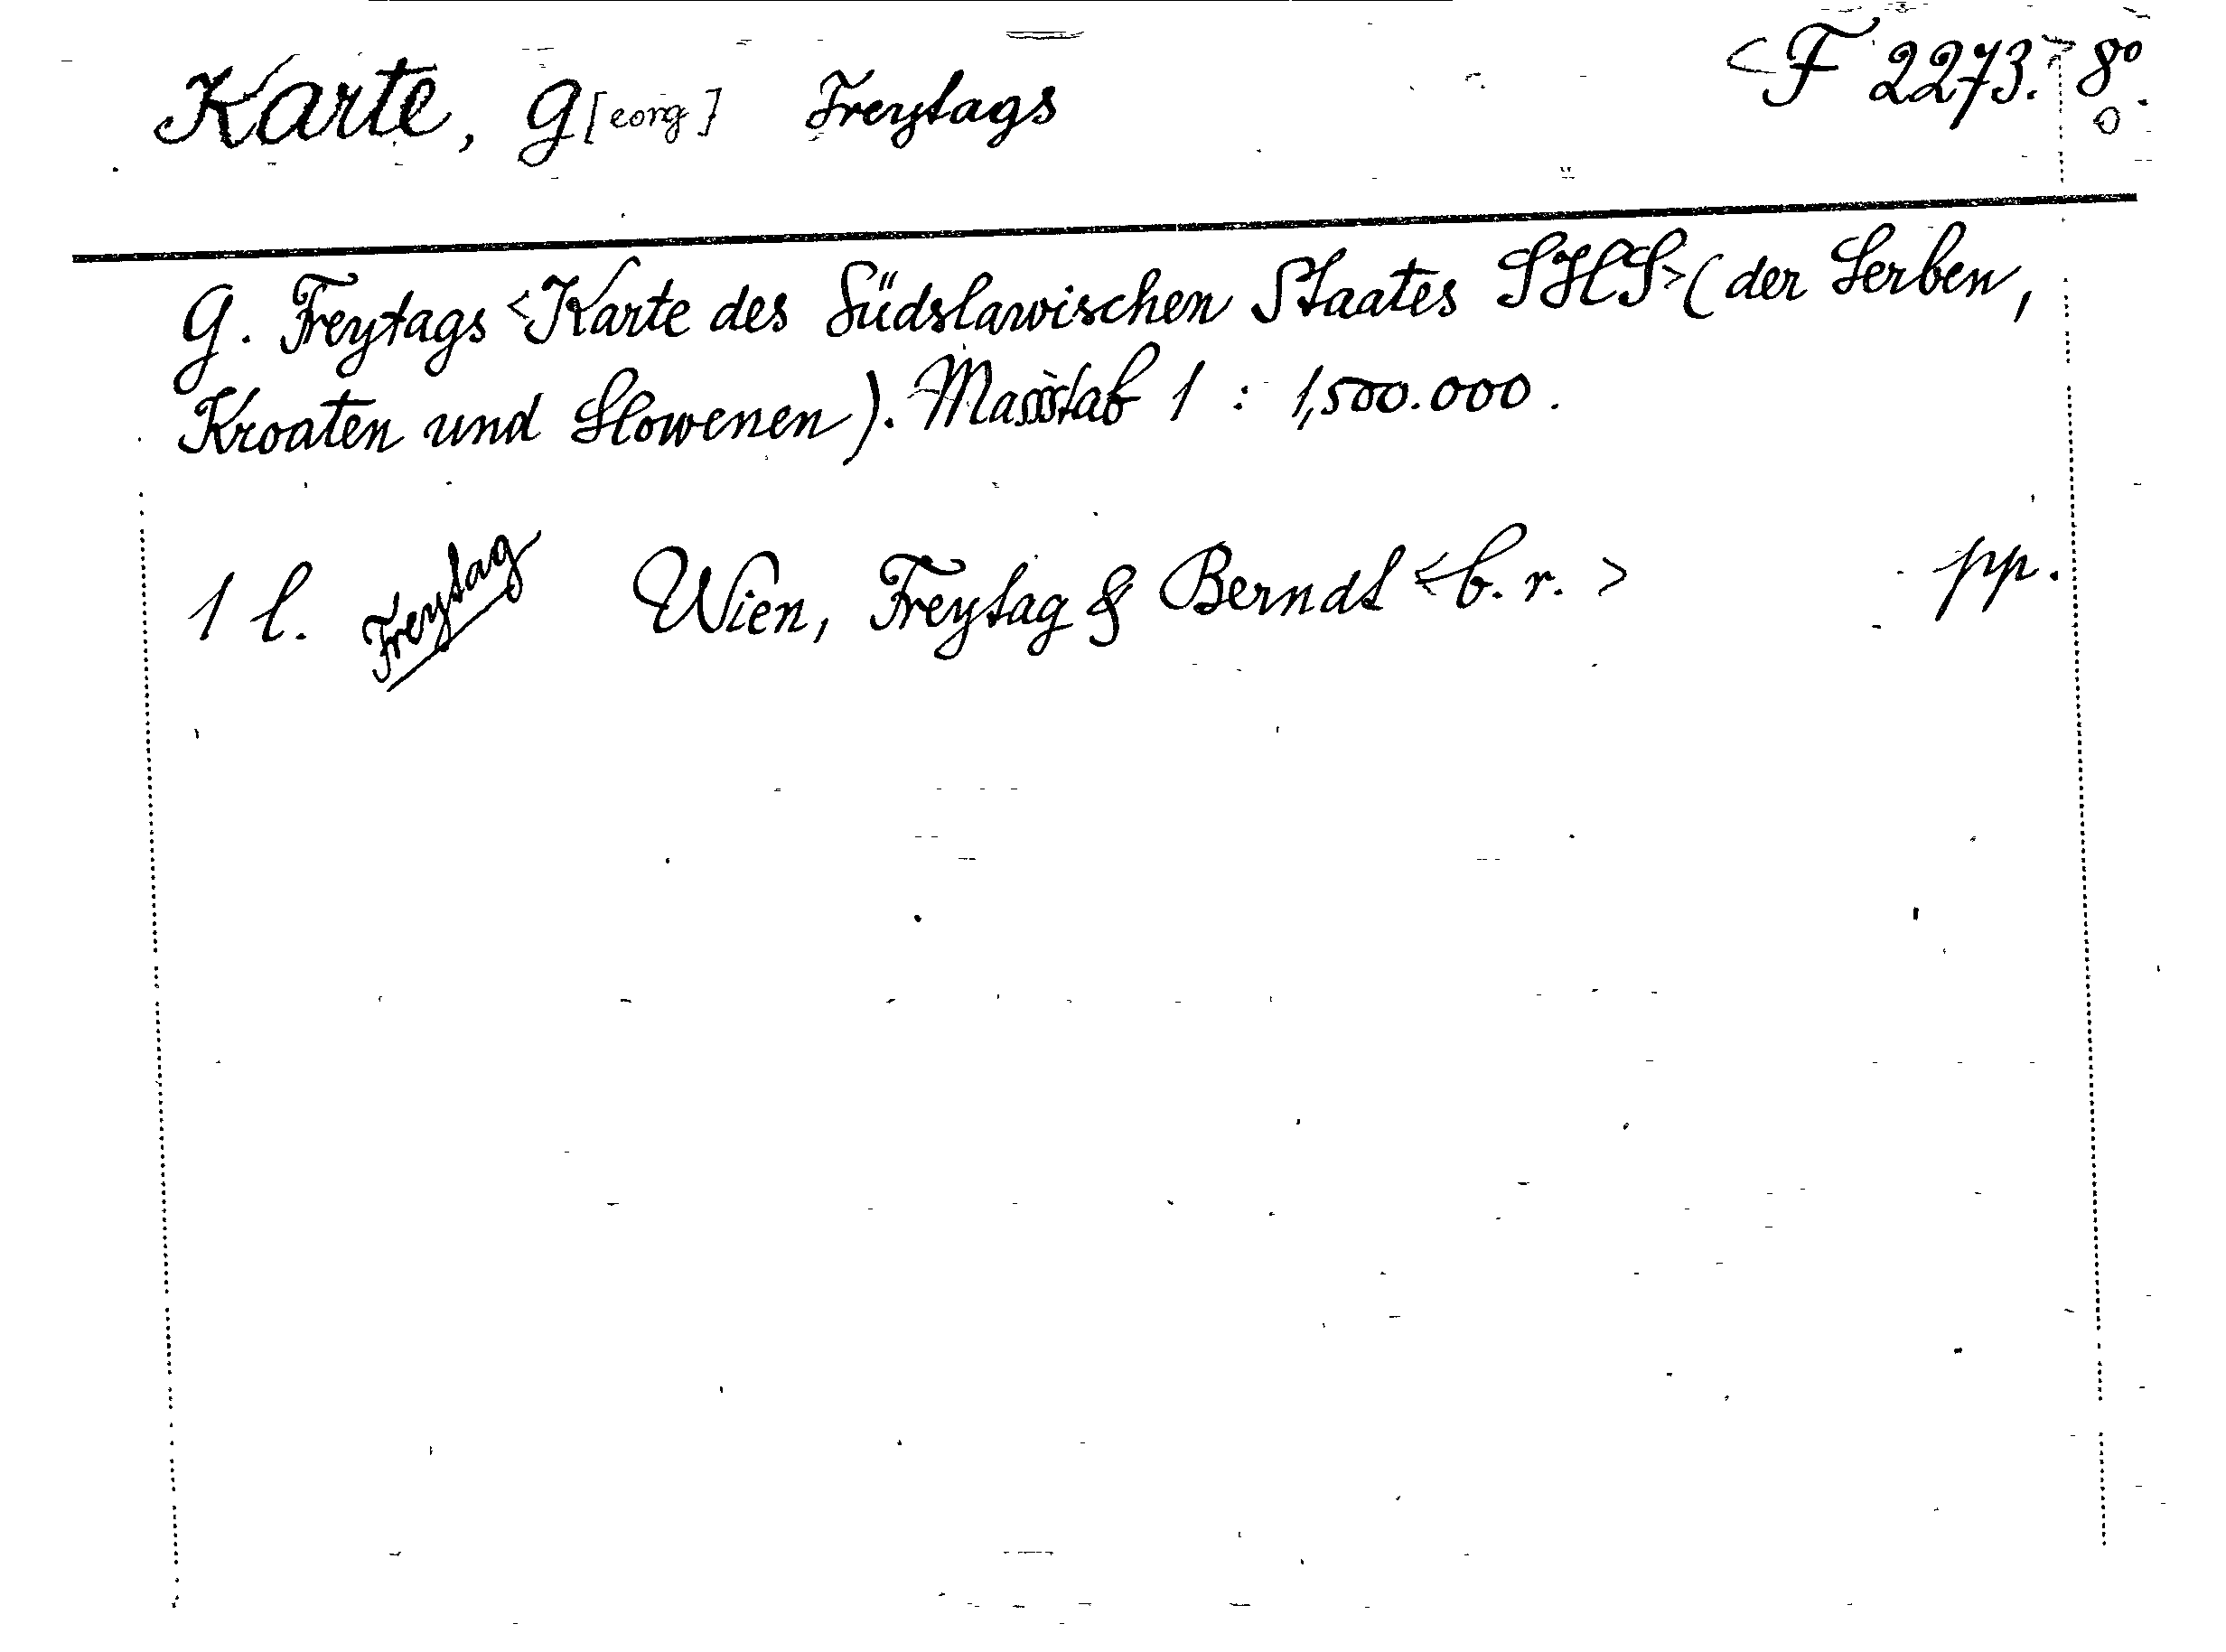 Karte, G[eorg] Freytags <F 2273.> 8º.
G. Freytags <Karte des Südslawischen Staates SHS> (der Serben,
Kroaten und Slowenen). Massstab 1 : 1,500.000.
1 l. Freytag Wien, Freytag & Berndt <b. r.> pp.